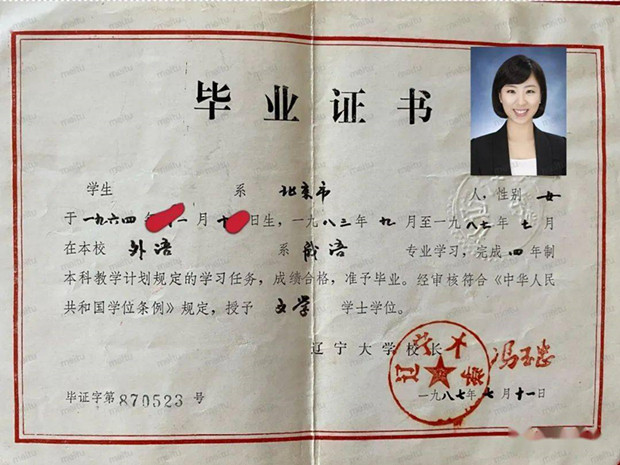 毕业证书
学生 系 北京市 人，性别 女
于一九六四年 一月十 日生，一九八三年九月至一九八七年七月
在本校 外语 系 俄语 专业学习，完成四年制
本科教学计划规定的学习任务，成绩合格，准予毕业。经审核符合《中华人民
共和国学位条例》规定，授予 文学 学士学位。
辽宁大学校长
辽宁大学
毕证字第870523号
一九八七年七月十一日